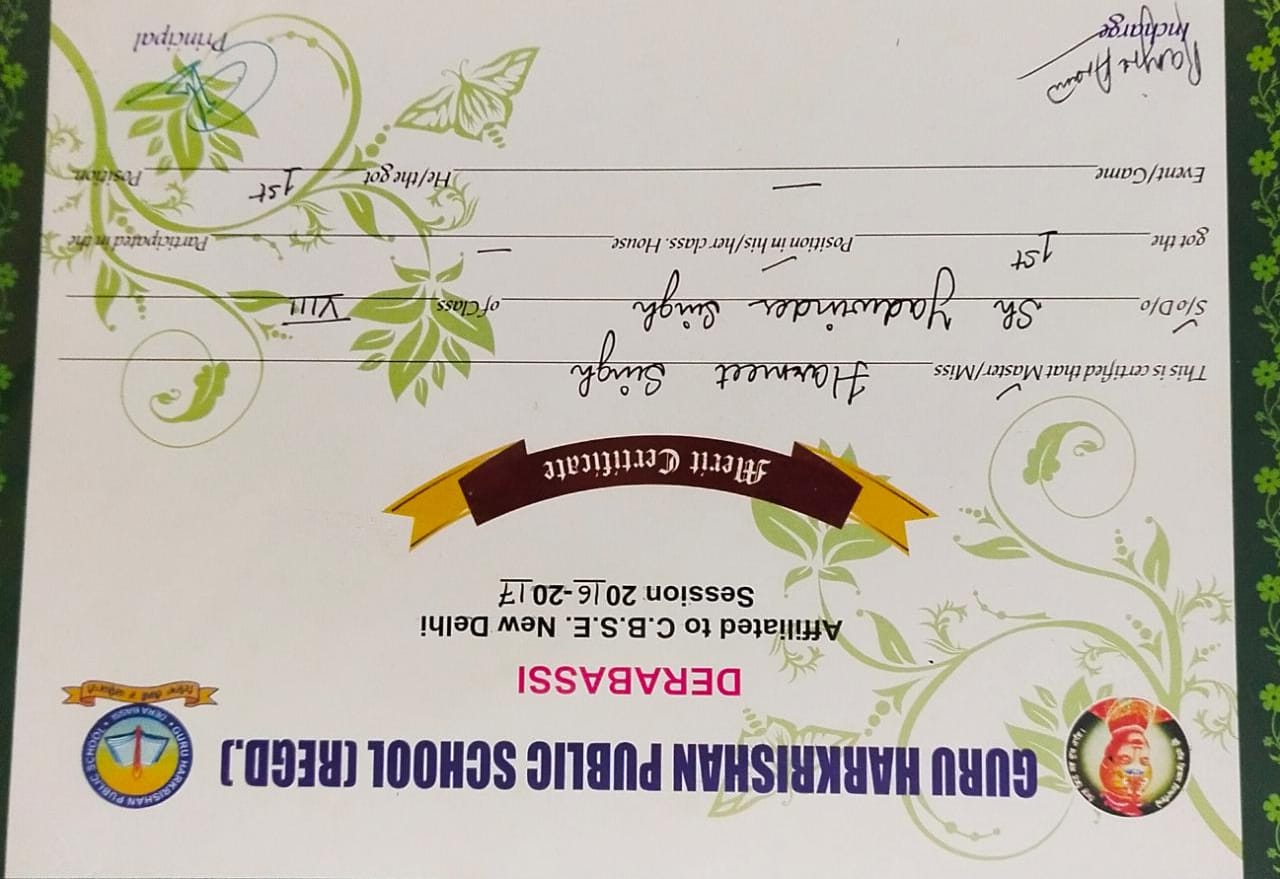 GURU HARKRISHAN PUBLIC SCHOOL (REGD.)
GURU HARKRISHAN PUBLIC SCHOOL
DERA BASSI
DERABASSI
Affiliated to C.B.S.E. New Delhi
Session 2016-2017
Merit Certificate
This is certified that Master/Miss Harmeet Singh
S/o D/o Sh Yadwinder Singh of Class VIII
got the 1st Position in his/her class. House — Participated in the
Event/Game — He/the got 1st Position
Incharge
Principal